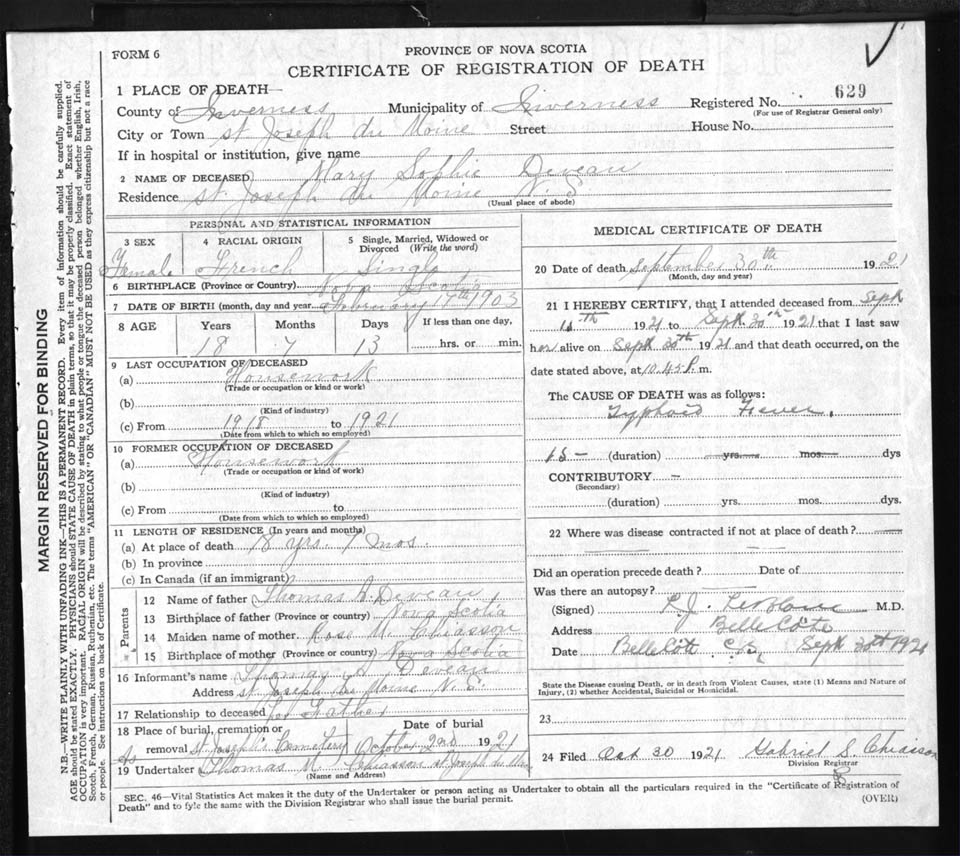 FORM 6
PROVINCE OF NOVA SCOTIA
CERTIFICATE OF REGISTRATION OF DEATH
1 PLACE OF DEATH—
County of Inverness Municipality of Inverness Registered No. 629
(For use of Registrar General only)
City or Town St Joseph du Moine Street House No.
If in hospital or institution, give name
2 NAME OF DECEASED Mary Sophie Deveau
Residence St. Joseph du Moine N. S
(Usual place of abode)
PERSONAL AND STATISTICAL INFORMATION
3 SEX 4 RACIAL ORIGIN 5 Single, Married, Widowed or Divorced (Write the word)
Female French Single
6 BIRTHPLACE (Province or Country) Nova Scotia
7 DATE OF BIRTH (month, day and year February 17th 1903
8 AGE Years Months Days If less than one day,
18 7 13 hrs. or min.
9 LAST OCCUPATION OF DECEASED
(a) Housework
(Trade or occupation or kind of work)
(b)
(Kind of industry)
(c) From 1918 to 1921
(Date from which to which so employed)
10 FORMER OCCUPATION OF DECEASED
(a) Housework
(Trade or occupation or kind of work)
(b)
(Kind of industry)
(c) From to
(Date from which to which so employed)
11 LENGTH OF RESIDENCE (In years and months)
(a) At place of death 18 yrs. 7 mos
(b) In province
(c) In Canada (if an immigrant)
Parents
12 Name of father Thomas Deveau
13 Birthplace of father (Province or Country) Nova Scotia
14 Maiden name of mother Rose M. Chiasson
15 Birthplace of mother (Province or country) Nova Scotia
16 Informant's name Thomas Deveau
Address St. Joseph du Moine N. S.
17 Relationship to deceased her Father
18 Place of burial, cremation or removal Date of burial
St Joseph's Cemetery October 2nd 1921
19 Undertaker Thomas M. Chiasson St Joseph du Moine
(Name and Address)
MEDICAL CERTIFICATE OF DEATH
20 Date of death September 30th 1921
(Month, day and year)
21 I HEREBY CERTIFY, that I attended deceased from Sept
16th 1921 to Sept. 30th 1921 that I last saw
her alive on Sept 30th 1921 and that death occurred, on the
date stated above, at 10.45 P. m.
The CAUSE OF DEATH was as follows:
Typhoid Fever.
15 – (duration) yrs. mos. dys
CONTRIBUTORY –
(Secondary)
(duration) yrs. mos. dys.
22 Where was disease contracted if not at place of death?
Did an operation precede death? Date of
Was there an autopsy?
(Signed) L. J. LeBlanc M.D.
Address Belle Côte
Date Belle Côte C.B. Sept 30th 1921
State the Disease causing Death, or in death from Violent Causes, state (1) Means and Nature of
Injury, (2) whether Accidental, Suicidal or Homicidal.
23
24 Filed Oct 30 1921 Gabriel S. Chiasson
Division Registrar
SEC. 46—Vital Statistics Act makes it the duty of the Undertaker or person acting as Undertaker to obtain all the particulars required in the "Certificate of Registration of
Death" and to file the same with the Division Registrar who shall issue the burial permit.
(OVER)
MARGIN RESERVED FOR BINDING
N.B.—WRITE PLAINLY WITH UNFADING INK—THIS IS A PERMANENT RECORD. Every item of information should be carefully supplied.
AGE should be stated EXACTLY. PHYSICIANS should STATE CAUSE OF DEATH in plain terms, so that it may be properly classified. Exact statement of
OCCUPATION is very important. RACIAL ORIGIN will be described by stating to what people or tongue the deceased person belonged whether English, Irish,
Scotch, French, German, Russian, Ruthenian, etc. The terms "AMERICAN" OR "CANADIAN" MUST NOT BE USED as they express citizenship but not a race
or people. See instructions on back of Certificate.